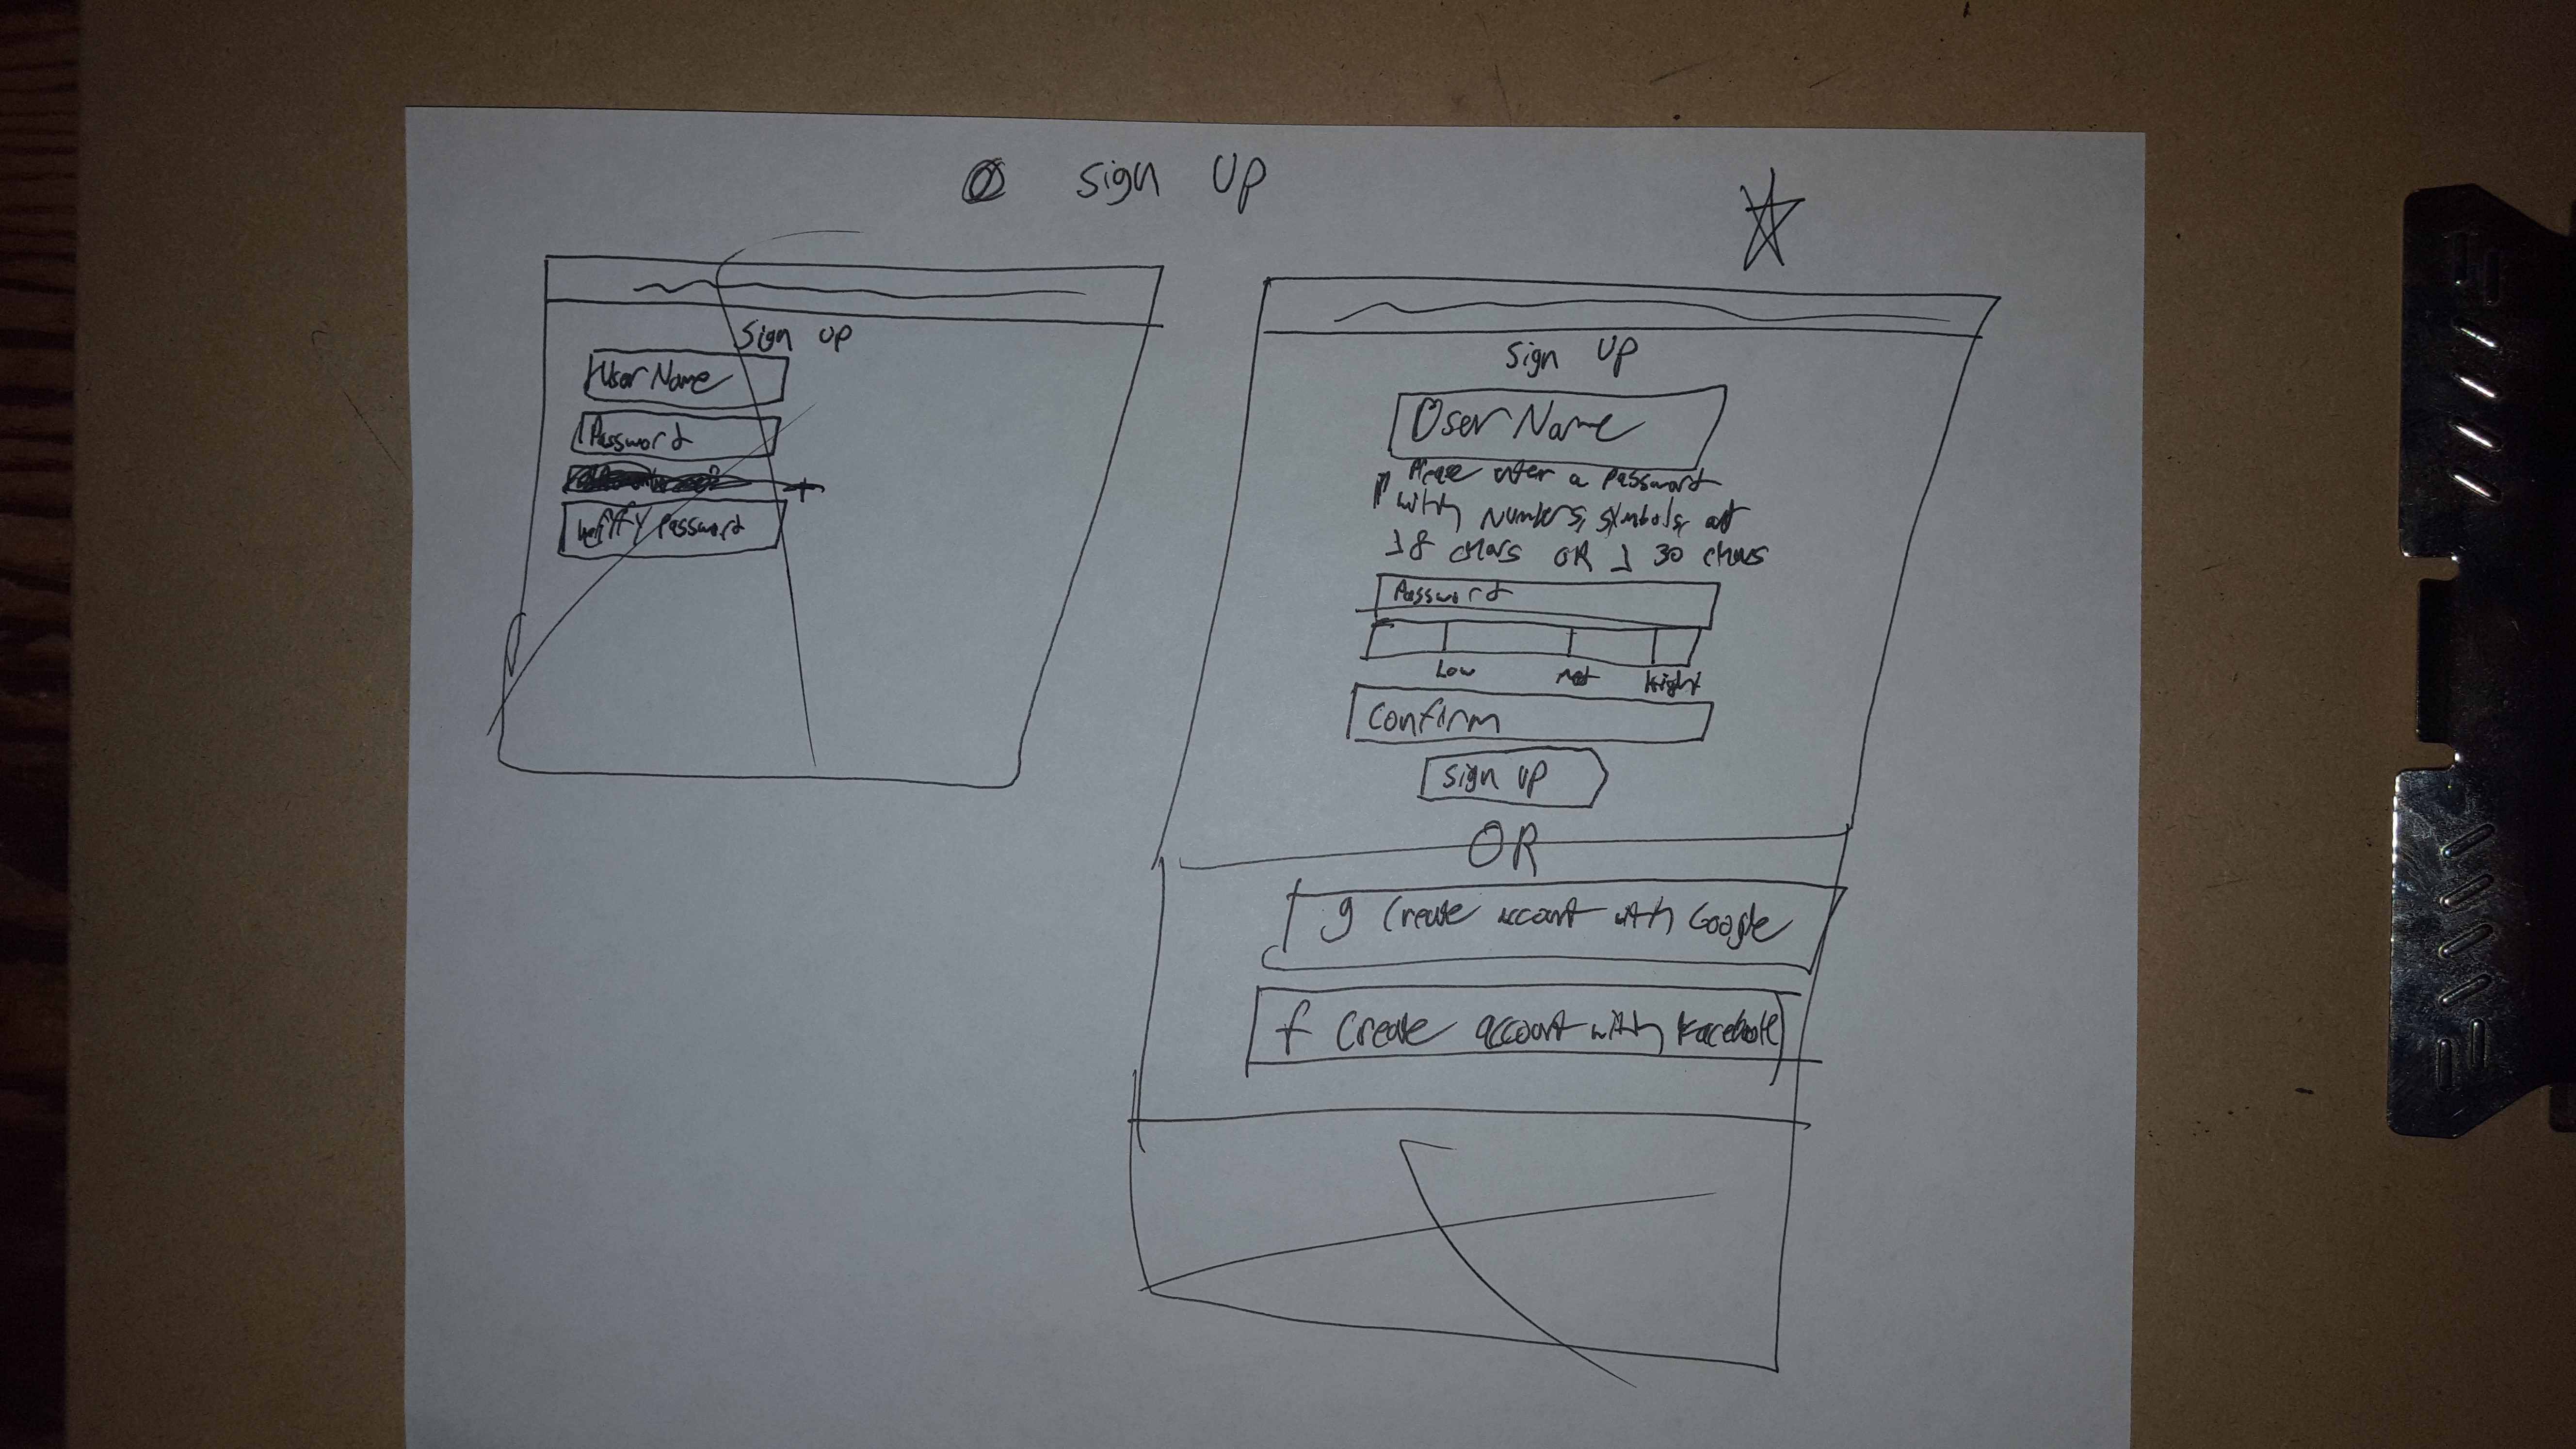 Sign Up
Sign Up
User Name
Password
Verify Password
Sign Up
User Name
Please enter a password
with numbers, symbols, at
8 chars OR 30 chars
Password
Low
High
Confirm
Sign Up
OR
g Create account with Google
f Create account with Facebook